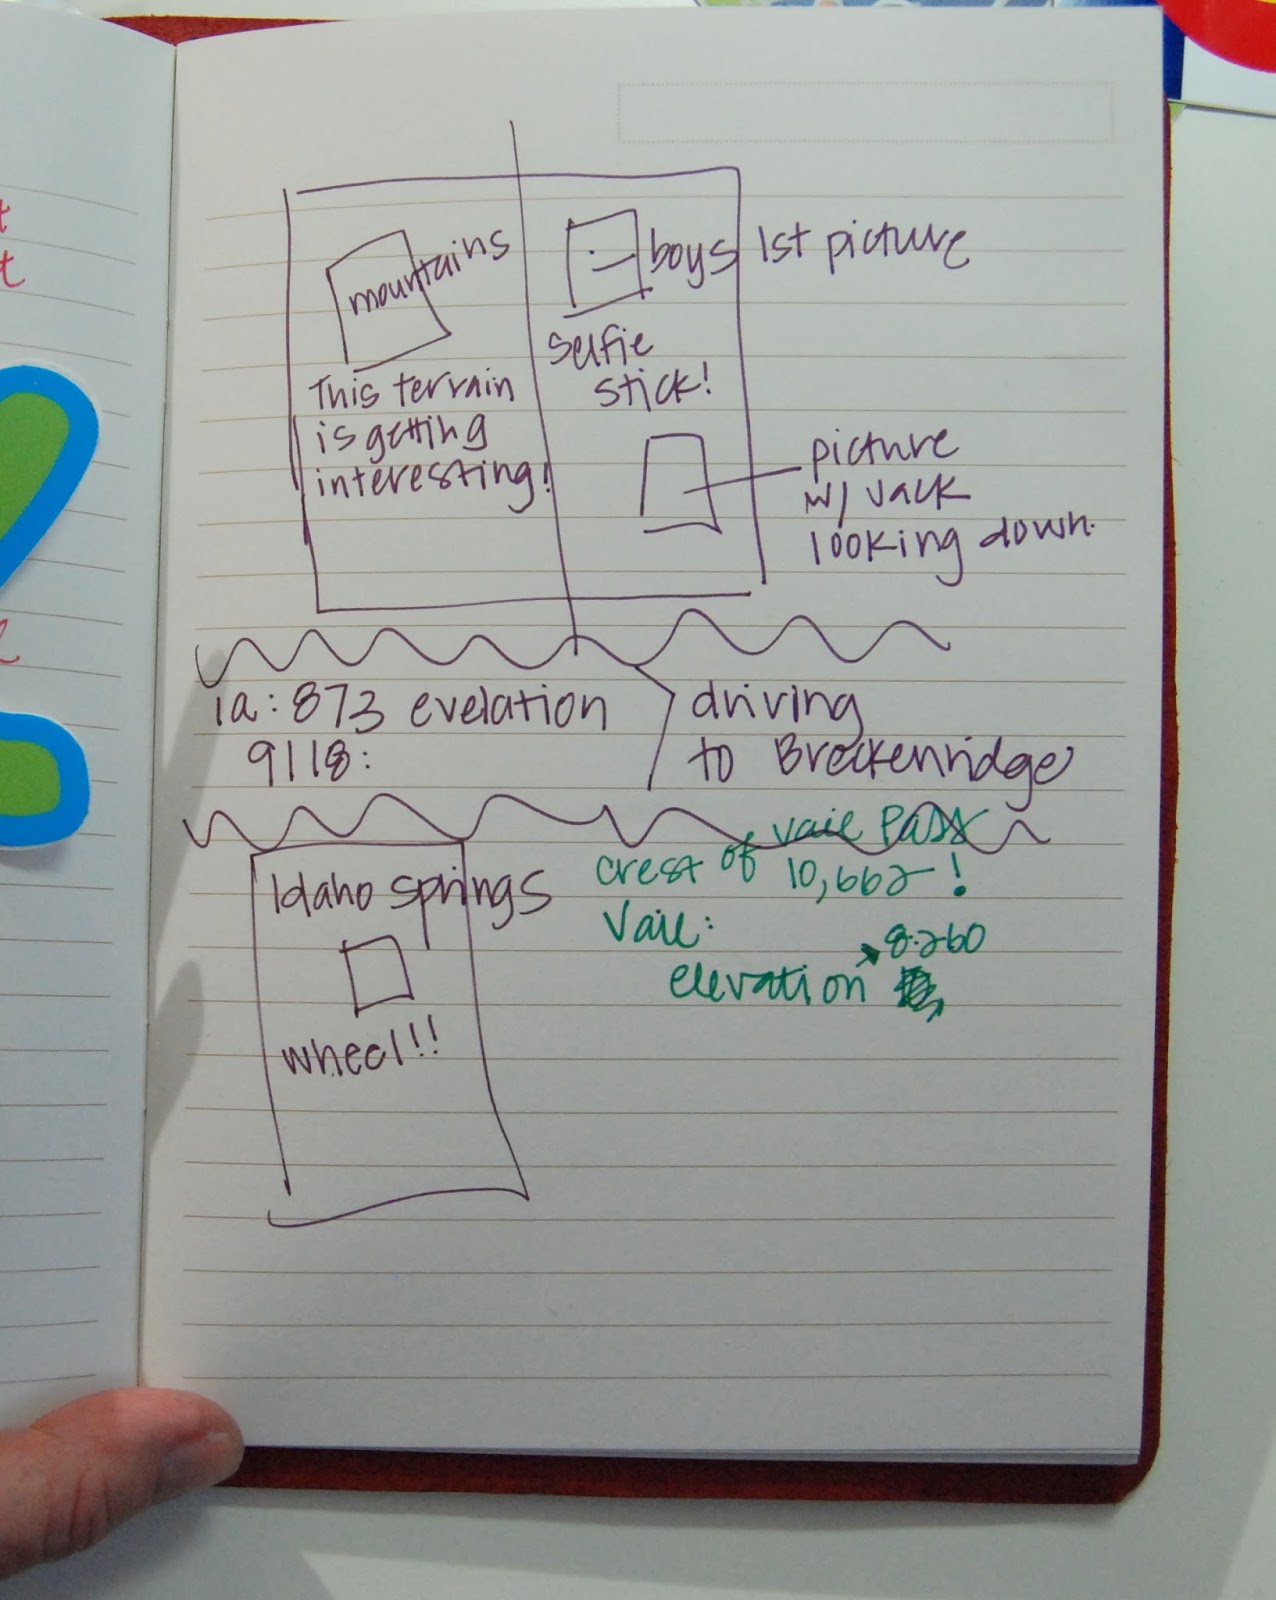 mountains
This terrain
is getting
interesting!
boys 1st picture
selfie
stick!
picture
w/ Jack
looking down.
ia: 873 evelation
9118:
driving
to Breckenridge
Idaho springs
wheel!!
crest of Vail Pass
10,662!
Vail:
elevation 8.260
t
t